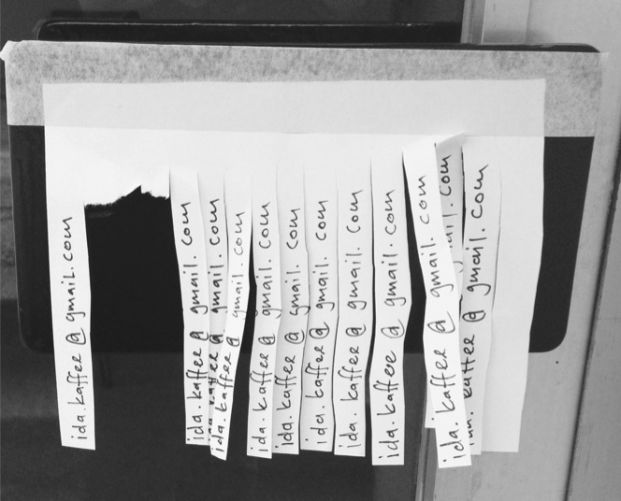 ida.kaffee@gmail.com
ida.kaffee@gmail.com
ida.kaffee@gmail.com
ida.kaffee@gmail.com
ida.kaffee@gmail.com
ida.kaffee@gmail.com
ida.kaffee@gmail.com
ida.kaffee@gmail.com
ida.kaffee@gmail.com
ida.kaffee@gmail.com
ail.com
ida.kaffee@gmail.com